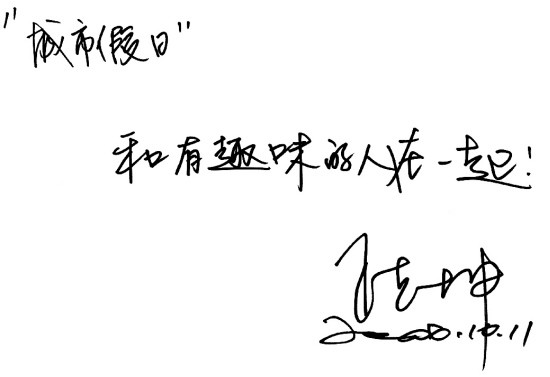 "城市假日"
和有趣味的人在一起!
2008.10.11